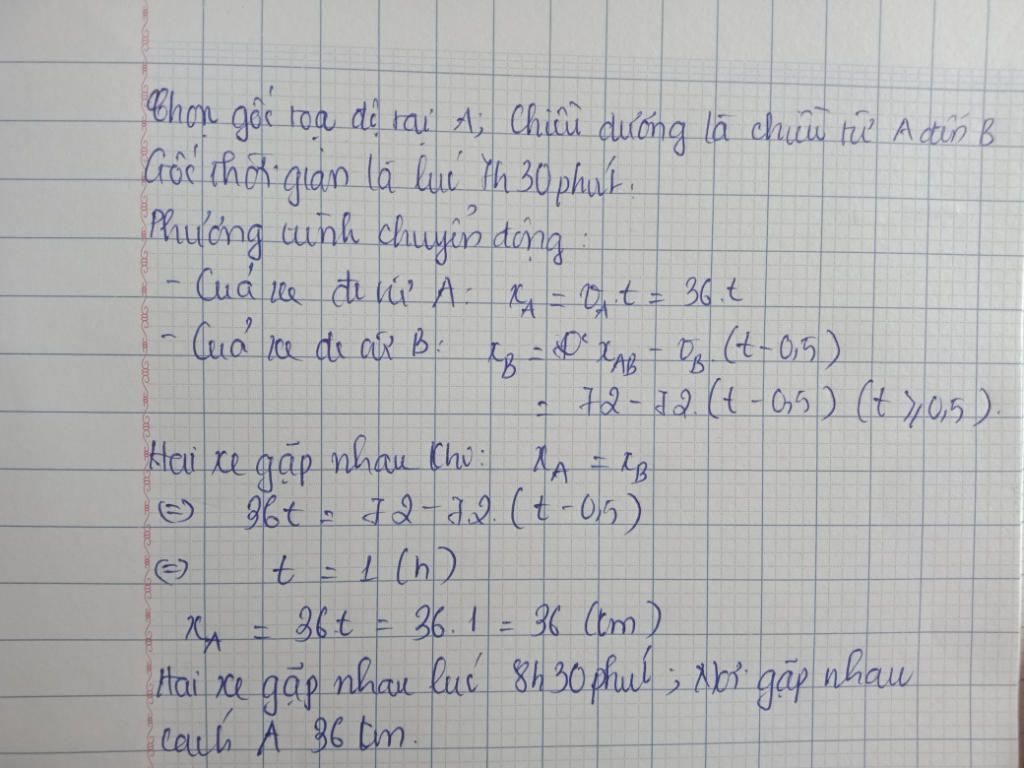 Chọn gốc toạ độ tại A; Chiều dương là chiều từ A đến B
Gốc thời gian là lúc 7h 30 phút.
Phương trình chuyển động :
- Của xe đi từ A: x_A = v_A.t = 36.t
- Của xe đi từ B: x_B = x_AB - v_B.(t - 0,5)
= 72 - 72.(t - 0,5) (t ⩾ 0,5).
Hai xe gặp nhau khi: x_A = x_B
⇔ 36t = 72 - 72.(t - 0,5)
⇔ t = 1 (h)
x_A = 36t = 36.1 = 36 (km)
Hai xe gặp nhau lúc 8h 30 phút ; Nơi gặp nhau
cách A 36 km.